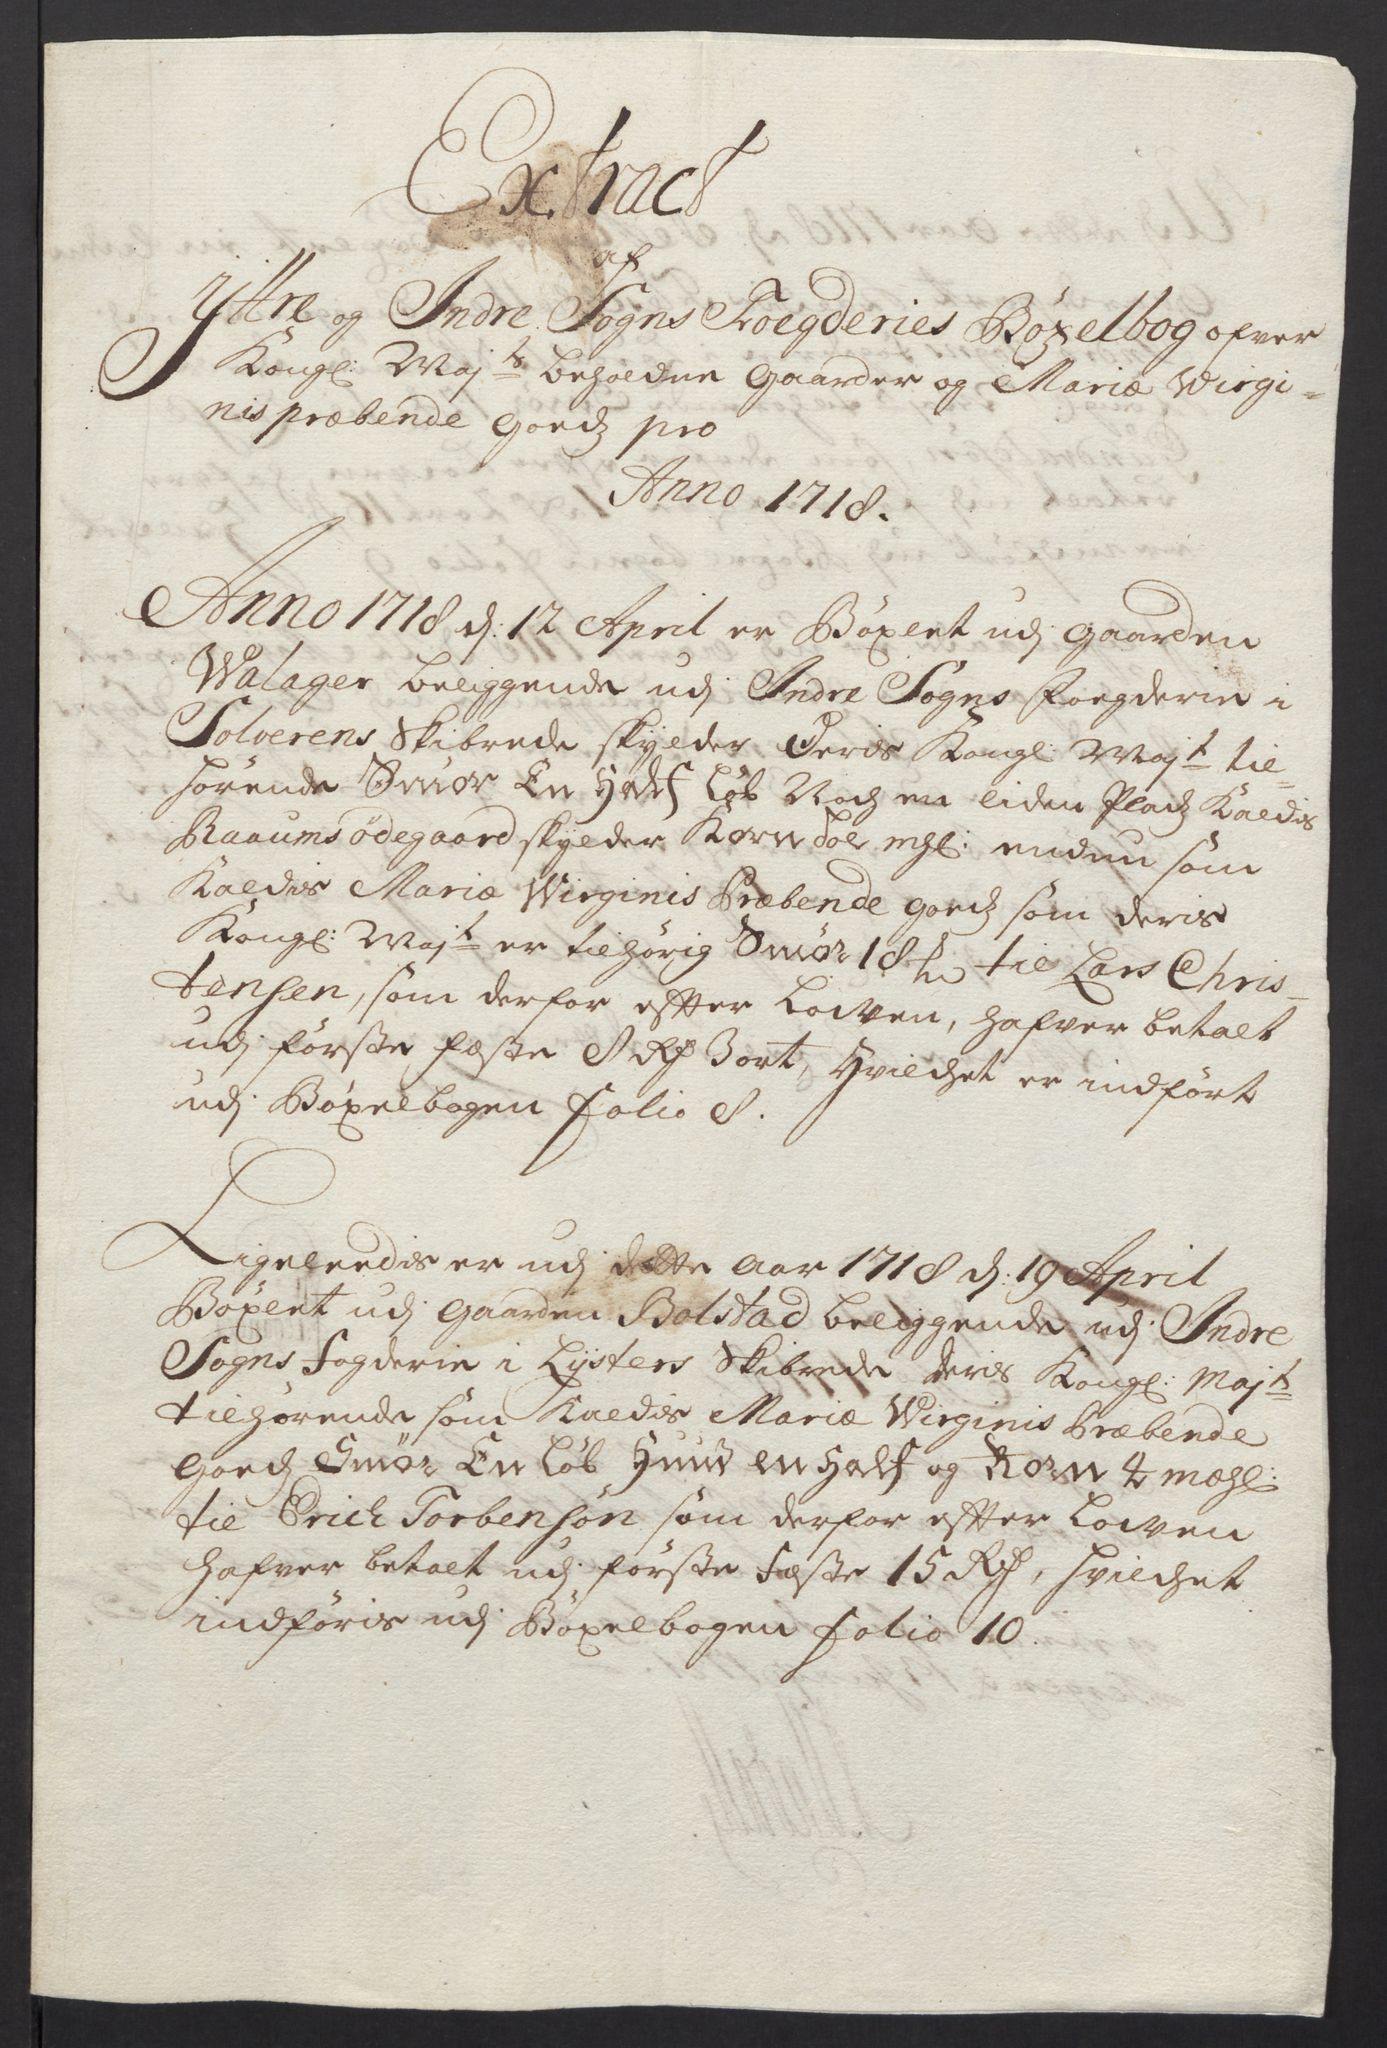 Extract
af
Yttre og Indre Sogns Foegderies Böxelbog ofver
Kongl: Maj:ts beholdne gaarder og Mariæ Virgi-
nis præbende goedz pro
Anno 1718.
Anno 1718 d: 12 April er Böxlet udj gaarden
Walager beliggende udj Indre Sogns foegderie i
Solverens Skibrede skylder Deris Kongl: Maj:t til-
hörende Smör En Half Löb Noch en liden Pladz Kaldis
Raaums ödegaard skylder Korn Toe mhl: endnu som
Kaldis Mariæ Wirginis Præbende goedz som deris
Kongl: Maj:t er tilhörig Smör 18 til Lars Chris-
tensen, som derfor effter Lowen, hafver betalt
udj förste fæste 8 Rd 3 ort, Hvilchet er indfört
udj Böxelbogen folio 8.
Ligeleedis er udj dette aar 1718 d: 19 April
Böxlet udj gaarden Bolstad beliggende udj Indre
Sogns fogderie i Lysters Skibrede deris Kongl: Maj:ts
tilhörende som Kaldis Mariæ Wirginis Præbende
goedz Smör En Löb Huud en Half og Korn 4 mæhl:
til Erich Torbensön som derfor effter Lowen
hafver betalt udj förste fæste 15 Rd, hvilchet
indföris udj Böxelbogen folio 10.